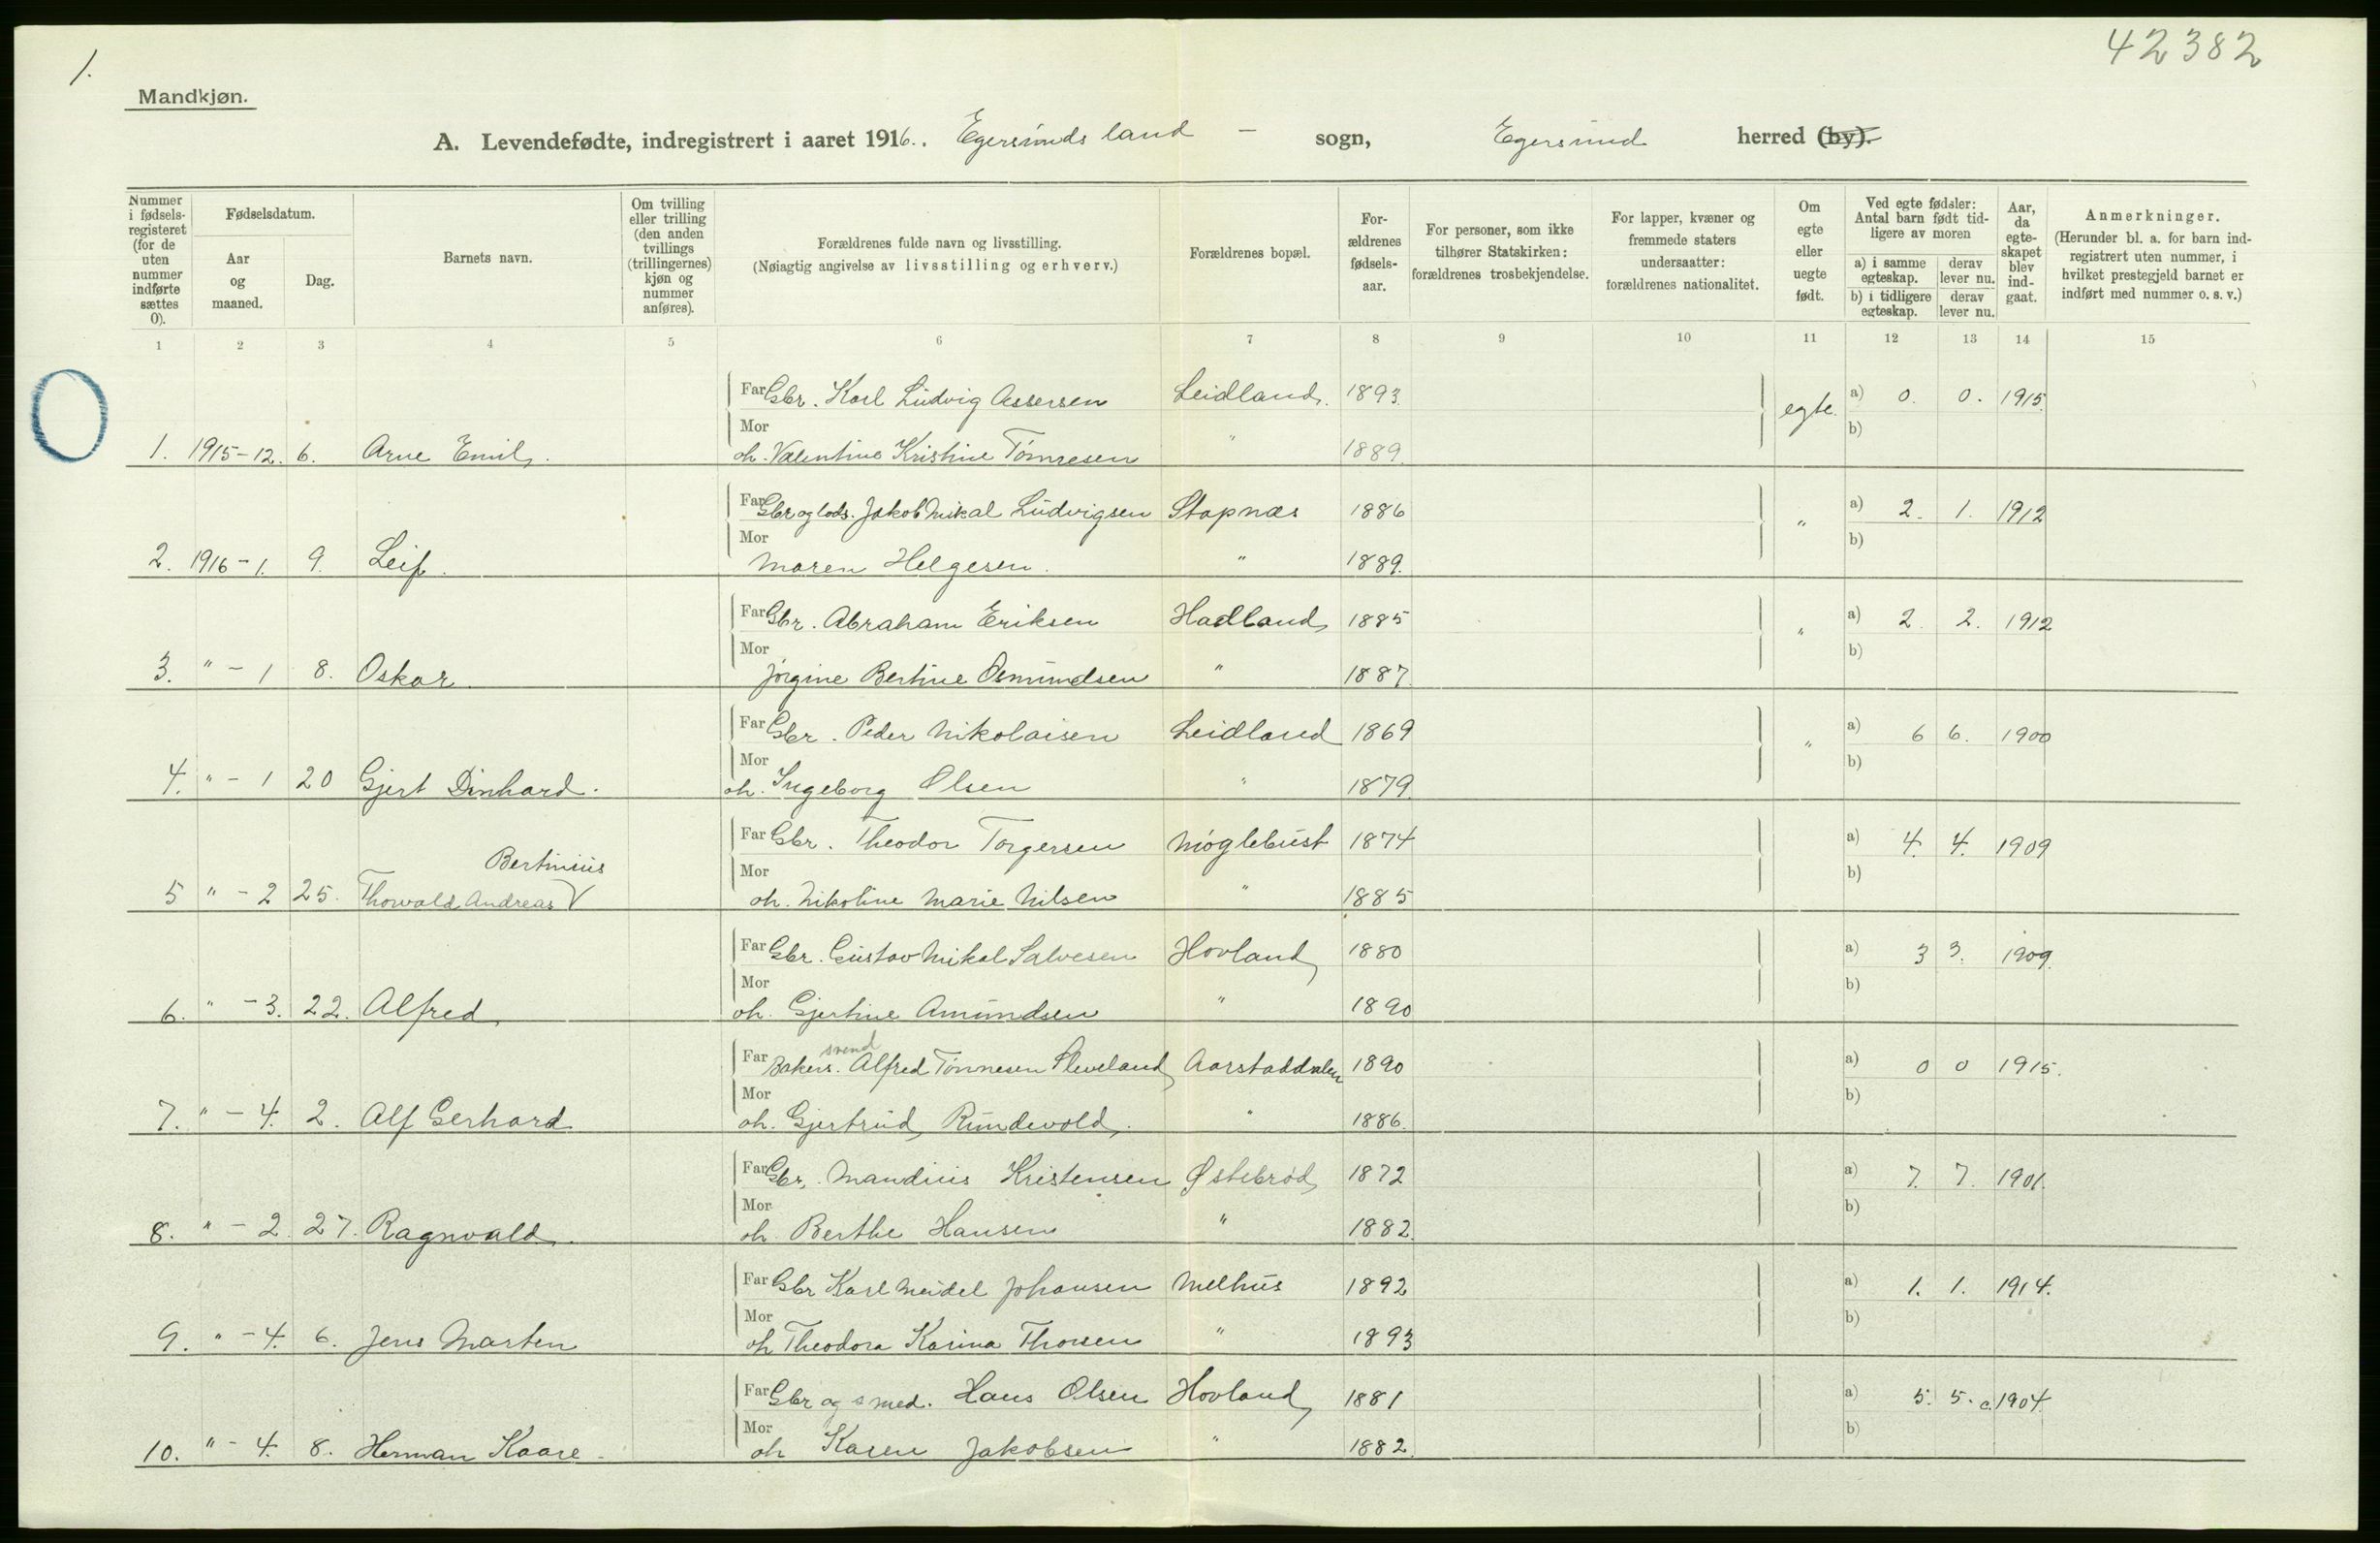 1.
42382
Mandkjøn.
A. Levendefødte, indregistrert i aaret 1916. Egersunds land - sogn, Egersund herred (by).
Nummer i fødsels-registeret (for de uten nummer indførte sættes 0).
Fødselsdatum.
Aar og maaned.
Dag.
Barnets navn.
Om tvilling eller trilling (den anden tvillings (trillingernes) kjøn og nummer anføres).
Forældrenes fulde navn og livsstilling.
(Nøiagtig angivelse av livsstilling og erhverv.)
Forældrenes bopæl.
For-ældrenes fødsels-aar.
For personer, som ikke tilhører Statskirken: forældrenes trosbekjendelse.
For lapper, kvæner og fremmede staters undersaatter: forældrenes nationalitet.
Om egte eller uegte født.
Ved egte fødsler: Antal barn født tid-ligere av moren
a) i samme egteskap.
derav lever nu.
b) i tidligere egteskap.
derav lever nu.
Aar, da egte-skapet blev ind-gaat.
Anmerkninger.
(Herunder bl. a. for barn ind-registrert uten nummer, i hvilket prestegjeld barnet er indført med nummer o. s. v.)
1 2 3 4 5 6 7 8 9 10 11 12 13 14 15
Far Gbr. Karl Ludvig Assersen Leidland. 1893. egte. a) 0. 0. 1915.
Mor b)
1. 1915-12. 6. Arne Emil. oh. Valentine Kristine Tønnesen " 1889.
Far Gbr og lods. Jakob Mikal Ludvigsen Stapnæs 1886 " a) 2. 1. 1912
Mor b)
2. 1916-1. 9. Leif. Maren Helgesen. " 1889.
Far Gbr. Abraham Eriksen Hadland 1885 " a) 2 2. 1912
Mor b)
3. " - 1 8. Oskar. Jørgine Bertine Osmundsen " 1887.
Far Gbr. Peder Nikolaisen Leidland 1869 " a) 6 6. 1900
Mor b)
4. " - 1 20 Gjert Dinhard. oh. Ingeborg Olsen " 1879.
Far Gbr. Theodor Torgersen Møglebust 1874 a) 4. 4. 1909
Bertinius Mor b)
5 " - 2 25. Thorvald Andreas V oh. Nikoline Marie Nilsen " 1885
Far Gbr. Gustav Mikal Salvesen Hovland 1880 a) 3 3. 1909.
Mor b)
6. " - 3. 22. Alfred. oh. Gjertine Amundsen " 1890
svend
Far Bakers. Alfred Tønnesen Sleveland Aarstaddalen 1890 a) 0 0 1915.
Mor b)
7. " - 4. 2. Alf Gerhard oh. Gjertrud Rundevold. " 1886.
Far Gbr. Mandius Kristensen Østebrød 1872 a) 7. 7. 1901.
Mor b)
8. " - 2. 27. Ragnvald. oh Berthe Hansen " 1882.
Far Gbr Karl Meidel Johansen Melhus 1892 a) 1. 1. 1914.
Mor b)
9. " - 4. 6. Jens Marten oh Theodora Karina Thorsen " 1893
Far Gbr og smed. Hans Olsen Hovland 1881 a) 5. 5. c. 1904.
Mor b)
10. " - 4. 8. Herman Kaare. oh Karen Jakobsen " 1882.